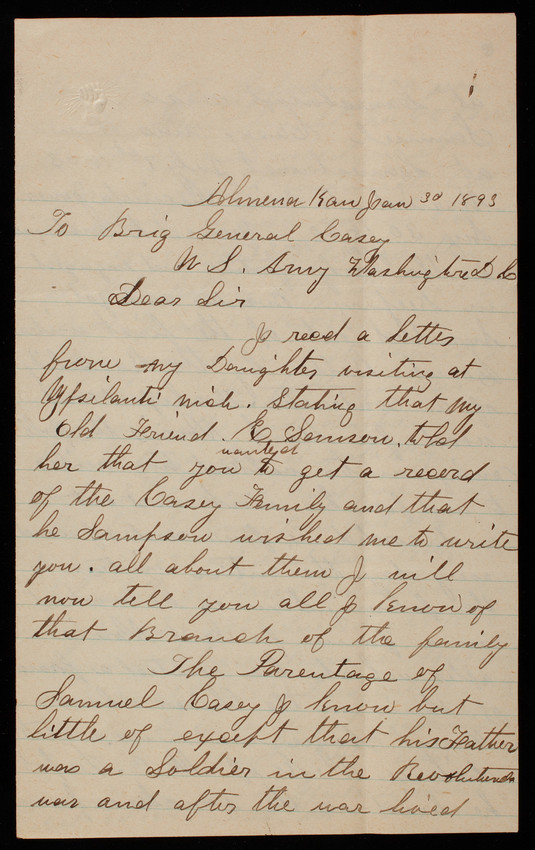 Almena Kan Jan 3d 1893
To Brig General Casey
U S. Army Washington D C
Dear Sir
I recd a Letter
from my Daughter visiting at
Ypsilanti Mich. Stating that my
Old Friend. Samson. told
her that you wanted to get a record
of the Casey Family and that
he Sampson wished me to write
you. all about them I will
now tell you all I know of
that Branch of the family
The Parentage of
Samuel Casey I know but
little of except that his Father
was a Soldier in the Revolution
war and after the war lived